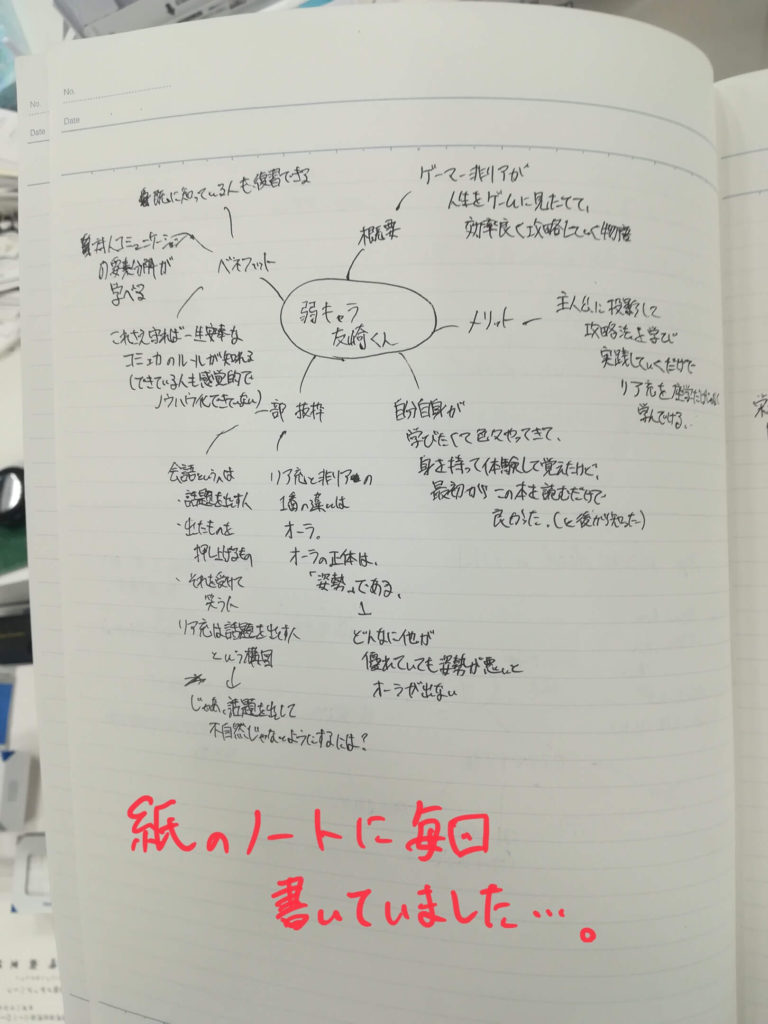 No.
Date
No.
Date
既に知っている人も復習できる
対人コミュニケーション
の要素分解が
学べる
ベネフィット
これさえ守れば一生安泰な
コミュ力のルールが知れる
(できている人も感覚的で
ノウハウ化できていない)
概要
ゲーマー非リアが
人生をゲームに見たてて、
効率良く攻略していく物語
弱キャラ
友崎くん
メリット
主人公に投影して
攻略法を学び
実践していくだけで
リア充を座学だけで
学んでける。
一部 抜粋
会話というのは
・話題を出す人
・出たものを
押し上げるもの
・それを受けて
笑う人
リア充は話題を出す人
という構図
↓
じゃあ、話題を出して
不自然じゃないようにするには?
リア充と非リアの
1番の違いは
オーラ。
オーラの正体は、
「姿勢」である。
↓
どんなに他が
優れていても姿勢が悪いと
オーラが出ない
自分自身が
学びたくて色々やってきて、
身を持って体験して覚えたけど、
最初からこの本を読むだけで
良かった。(と後から知った)
紙のノートに毎回
書いていました…。